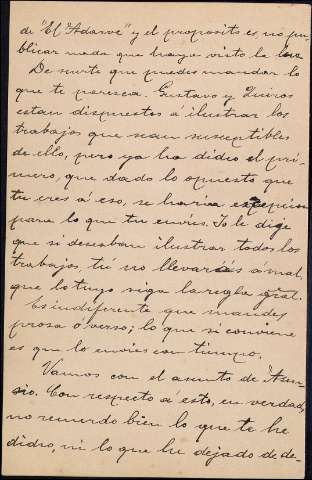 de "El Adarve" y el proposito es no pu-
blicar nada que haya visto la luz
De suerte que puedes mandar lo
que te paresca. Gustavo y Quiros
estan dispuestos á ilustrar los
trabajos que sean suseptibles
de ello, pero ya ha didio el pri-
mero, que dado lo opuesto que
tu eres á eso, se haria esepción
para lo que tu envies. Yo le dige
que si deseaban ilustrar todos los
trabajos, tú no llevariás a mal,
que lo tuyo siga la regla gral.
Es indiferente que mandes
prosa ó verso; lo que si conviene
es que lo envies con tiempo.
Vamos con el asunto de
Con respecto á esto, en verdad,
no recuerdo bien lo que te he
didio, ni lo que he dejado de de-